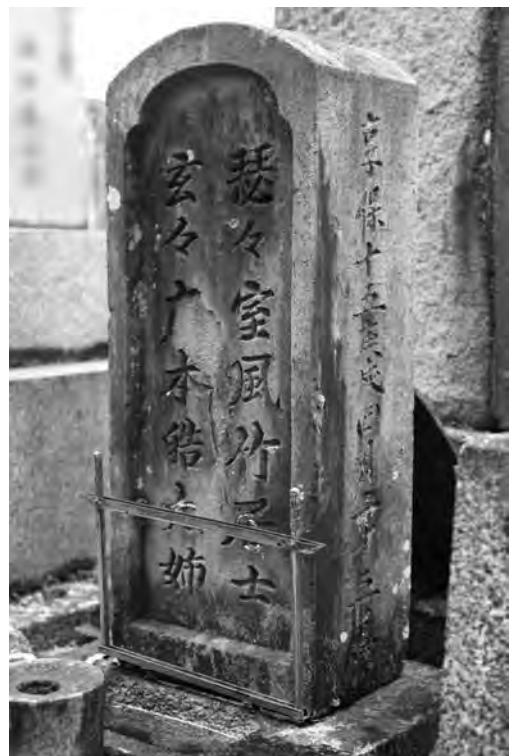 瑟々室風竹居士
玄々广本皓大姉
享保十五庚戌四月二十三日